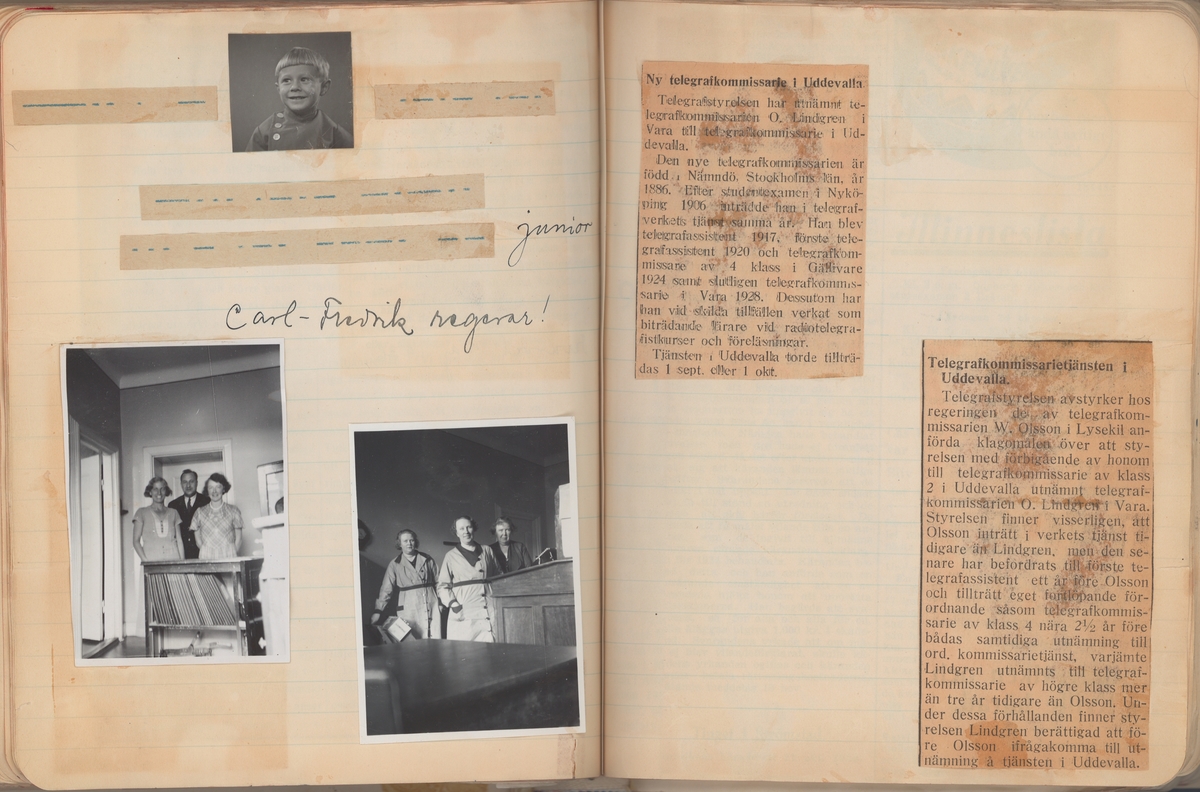 junior
Carl-Fredrik regerar!
Ny telegrafkommissarie i Uddevalla
Telegrafstyrelsen har utnämnt te-
legrafkommissarien O. Lindgren i
Vara till telegrafkommissarie i Ud-
devalla.
Den nye telegrafkommissarien är
född i Nämndö, Stockholms län, år
1886. Efter studentexamen i Nykö-
ping 1906 inträdde han i telegraf-
verkets tjänst samma år. Han blev
telegrafassistent 1917, förste tele-
grafassistent 1920 och telegrafkom-
missare av 4 klass i Gällivare
1924 samt slutligen telegrafkommis-
sarie i Vara 1928. Dessutom har
han vid skilda tillfällen verkat som
biträdande lärare vid radiotelegra-
fistkurser och föreläsningar.
Tjänsten i Uddevalla torde tillträ-
das 1 sept. eller 1 okt.
Telegrafkommissarietjänsten i
Uddevalla.
Telegrafstyrelsen avstyrker hos
regeringen de av telegrafkom-
missarien W. Olsson i Lysekil an-
förda klagomålen över att sty-
relsen med förbigående av honom
till telegrafkommissarie av klass
2 i Uddevalla utnämnt telegraf-
kommissarien O. Lindgren i Vara.
Styrelsen finner visserligen, att
Olsson inträtt i verkets tjänst ti-
digare än Lindgren, men den se-
nare har befordrats till förste te-
legrafassistent ett år före Olsson
och tillträtt eget fortlöpande för-
ordnande såsom telegrafkommis-
sarie av klass 4 nära 2½ år före
bådas samtidiga utnämning till
ord. kommissarietjänst, varjämte
Lindgren utnämnts till telegraf-
kommissarie av högre klass mer
än tre år tidigare än Olsson. Un-
der dessa förhållanden finner sty-
relsen Lindgren berättigad att fö-
re Olsson ifrågakomma till ut-
nämning å tjänsten i Uddevalla.